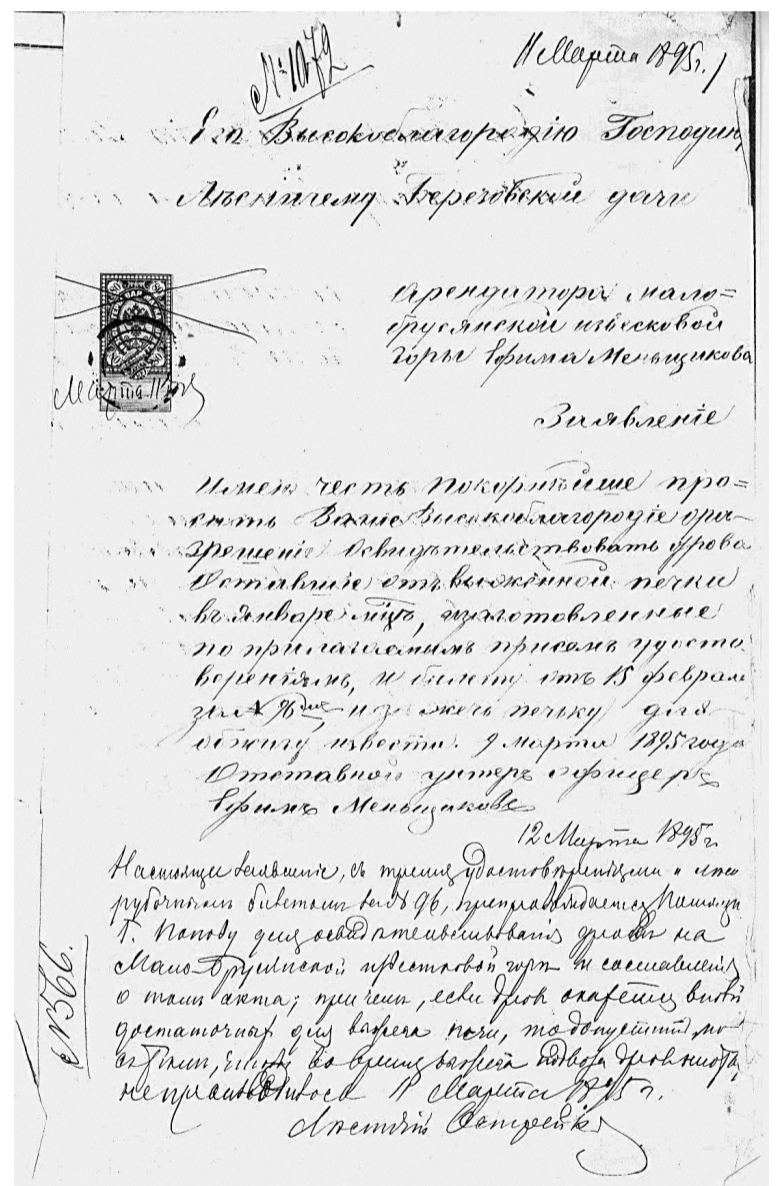 № 1072
11 Марта 1895 г.
Его Высокоблагородію Господину
Лѣсничему Березовской дачи
80 80
Арендатора мало=
брусянской известковой
горы Ефима Меньщикова
Марта 11
Заявленіе
Имею честь покорнѣйше про=
сить Ваше Высокоблагородіе ора=
зрешеніе освидѣтельствовать дрова
Оставшіе отъ выжженной печки
въ Январе мцѣ, изготовленные
по прилагаемымъ присемъ удосто
вереніямъ, и билету отъ 15 феврал
за № 96, изжечь печьку для
обжигу извести. 9 марта 1895 года
Отставной унтеръ офицеръ
Ефимъ Меньщиковъ
12 Марта 1895 г.
Настоящее заявленіе, съ тремя удостовѣреніями и лесо
рубочнымъ билетомъ за № 96, препровождается
Г. Попову для освидѣтельствованія дровъ на
Мало-Брусянской известковой горѣ и составленія
о томъ акта; причемъ, если дровъ окажется вполнѣ
достаточныхъ для выжега печи, то допустить
во время выжега подвоза дровъ
не производилось 11 Марта 1895 г.
Лѣсничій
№ 566.